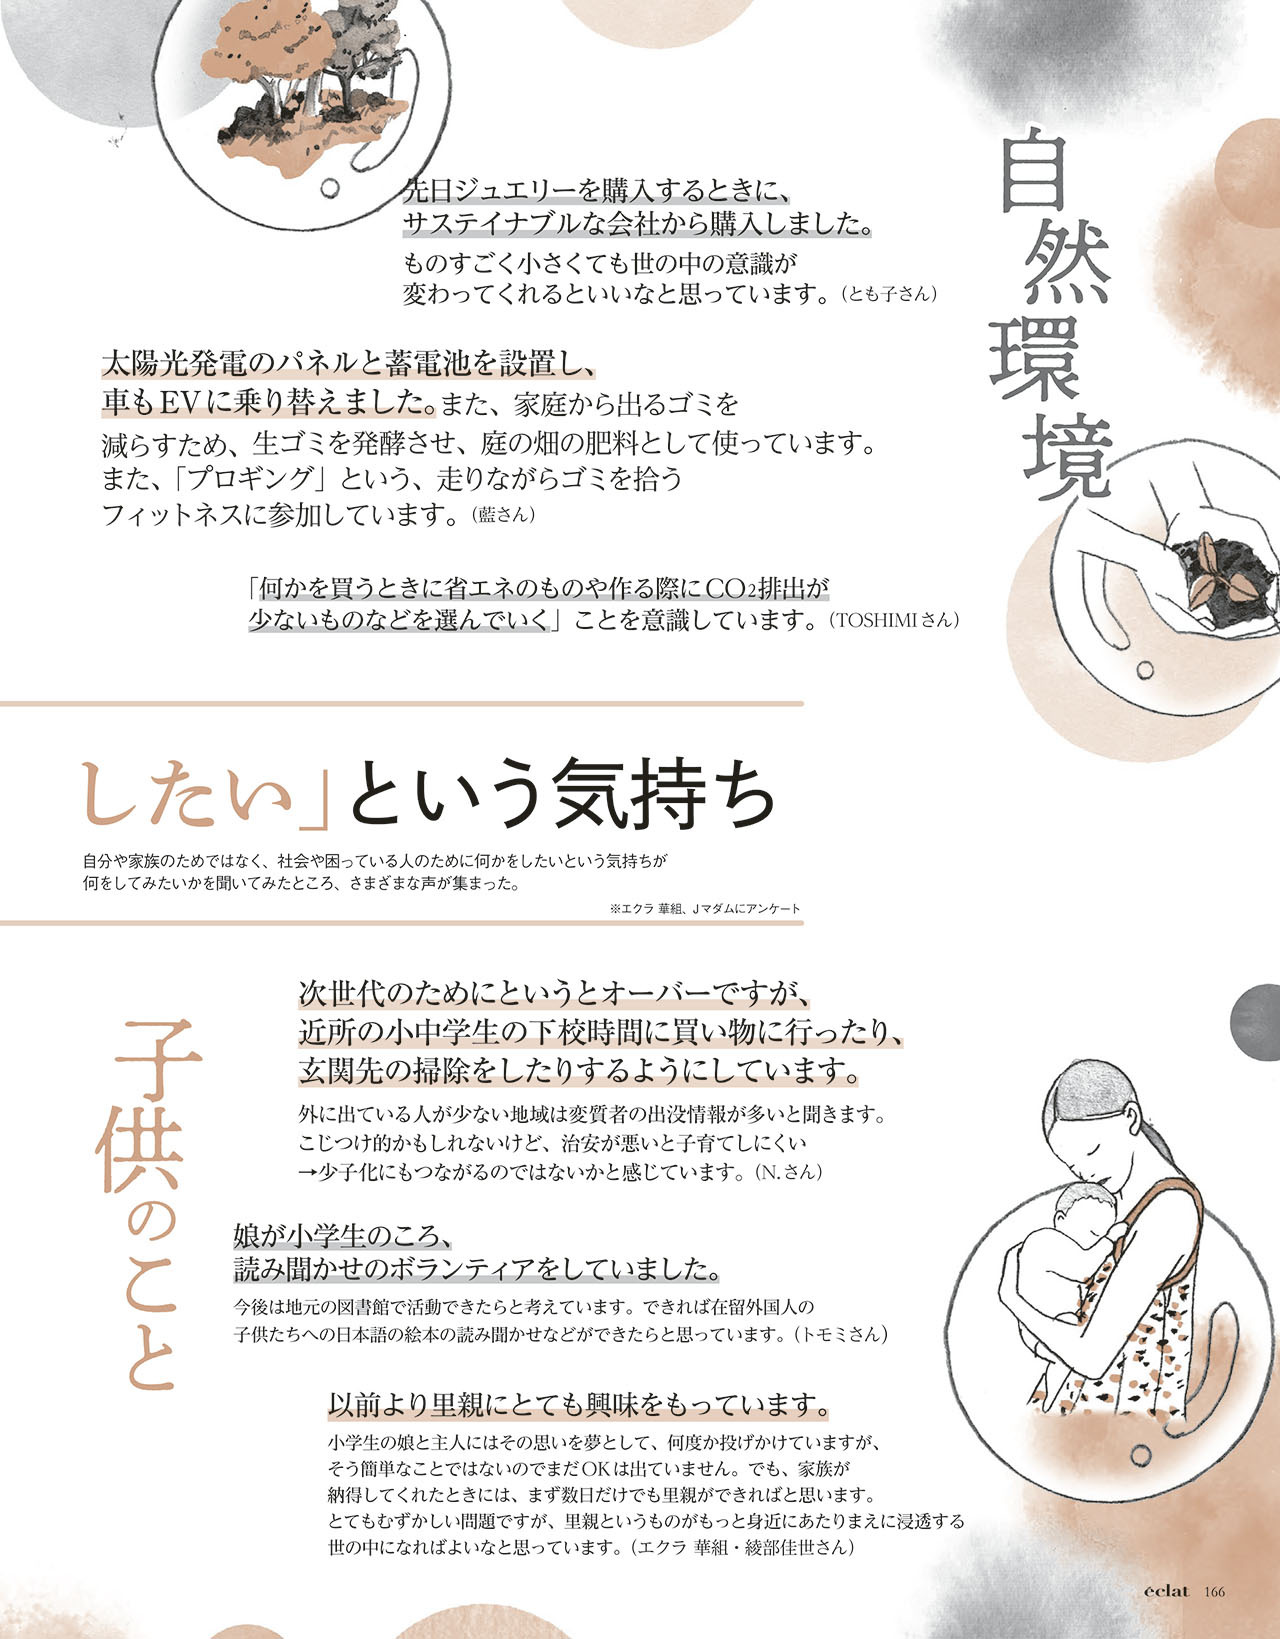 自然環境
先日ジュエリーを購入するときに、
サステイナブルな会社から購入しました。
ものすごく小さくても世の中の意識が
変わってくれるといいなと思っています。（とも子さん）
太陽光発電のパネルと蓄電池を設置し、
車もEVに乗り替えました。また、家庭から出るゴミを
減らすため、生ゴミを発酵させ、庭の畑の肥料として使っています。
また、「プロギング」という、走りながらゴミを拾う
フィットネスに参加しています。（藍さん）
「何かを買うときに省エネのものや作る際にCO2排出が
少ないものなどを選んでいく」ことを意識しています。（TOSHIMIさん）
したい」という気持ち
自分や家族のためではなく、社会や困っている人のために何かをしたいという気持ちが
何をしてみたいかを聞いてみたところ、さまざまな声が集まった。
※エクラ 華組、Jマダムにアンケート
子供のこと
次世代のためにというとオーバーですが、
近所の小中学生の下校時間に買い物に行ったり、
玄関先の掃除をしたりするようにしています。
外に出ている人が少ない地域は変質者の出没情報が多いと聞きます。
こじつけ的かもしれないけど、治安が悪いと子育てしにくい
→少子化にもつながるのではないかと感じています。（N.さん）
娘が小学生のころ、
読み聞かせのボランティアをしていました。
今後は地元の図書館で活動できたらと考えています。できれば在留外国人の
子供たちへの日本語の絵本の読み聞かせなどができたらと思っています。（トモミさん）
以前より里親にとても興味をもっています。
小学生の娘と主人にはその思いを夢として、何度か投げかけていますが、
そう簡単なことではないのでまだOKは出ていません。でも、家族が
納得してくれたときには、まず数日だけでも里親ができればと思います。
とてもむずかしい問題ですが、里親というものがもっと身近にあたりまえに浸透する
世の中になればよいなと思っています。（エクラ 華組・綾部佳世さん）
éclat 166